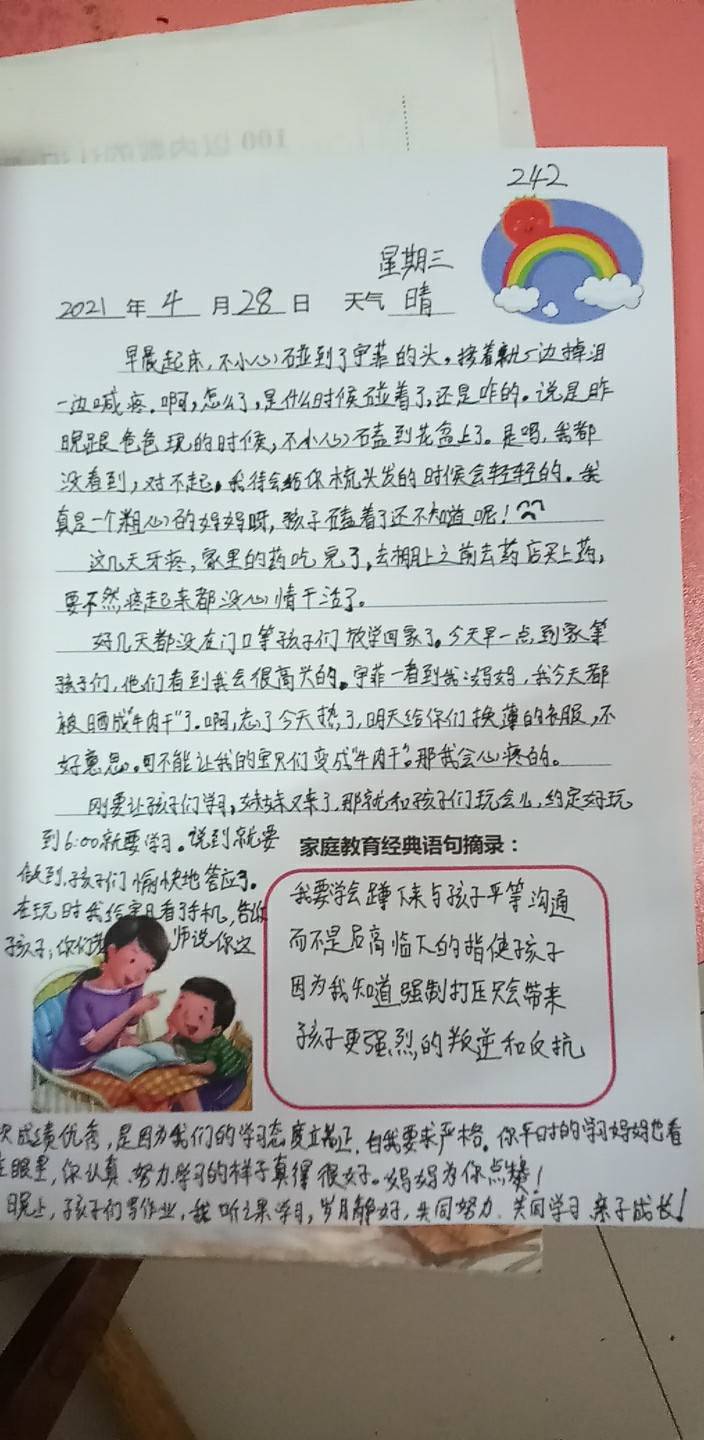 242
星期三
2021 年 4 月 28 日 天气 晴
早晨起床,不小心碰到了宇菲的头。接着就一边掉泪
一边喊疼。啊,怎么了,是什么时候碰着了,还是咋的。说是昨
晚跟爸爸玩的时候,不小心磕到花盆上了。是吗,我都
没看到,对不起。我待会给你梳头发的时候会轻轻的。我
真是一个粗心的妈妈呀,孩子磕着了还不知道呢!
这几天牙疼,家里的药吃完了,去棚上之前去药店买上药,
要不然,疼起来都没心情干活了。
好几天都没在门口等孩子们放学回家了。今天早一点,到家等
孩子们,他们看到我会很高兴的。宇菲一看到我:妈妈,我今天都
被晒成“牛肉干”了。啊,忘了今天热了,明天给你们换薄的衣服,不
好意思。可不能让我的宝贝们变成“牛肉干”。那我会心疼的。
刚要让孩子们学习,妹妹又来了,那就和孩子们玩会儿,约定好玩
到6:00就要学习。说到就要
做到,孩子们愉快地答应了。
在玩时我给宝贝看了手机,告诉
孩子,你们 师说你这
次成绩优秀,是因为我们的学习态度立端正,自我要求严格。你平日时的学习妈妈也看
在眼里,你认真、努力学习的样子真得很好。妈妈为你点赞!
晚上,孩子们写作业,我听课学习,岁月静好,共同努力、共同学习、亲子成长!
家庭教育经典语句摘录:
我要学会蹲下来与孩子平等沟通
而不是居高临下的指使孩子
因为我知道强制打压只会带来
孩子更强烈的叛逆和反抗